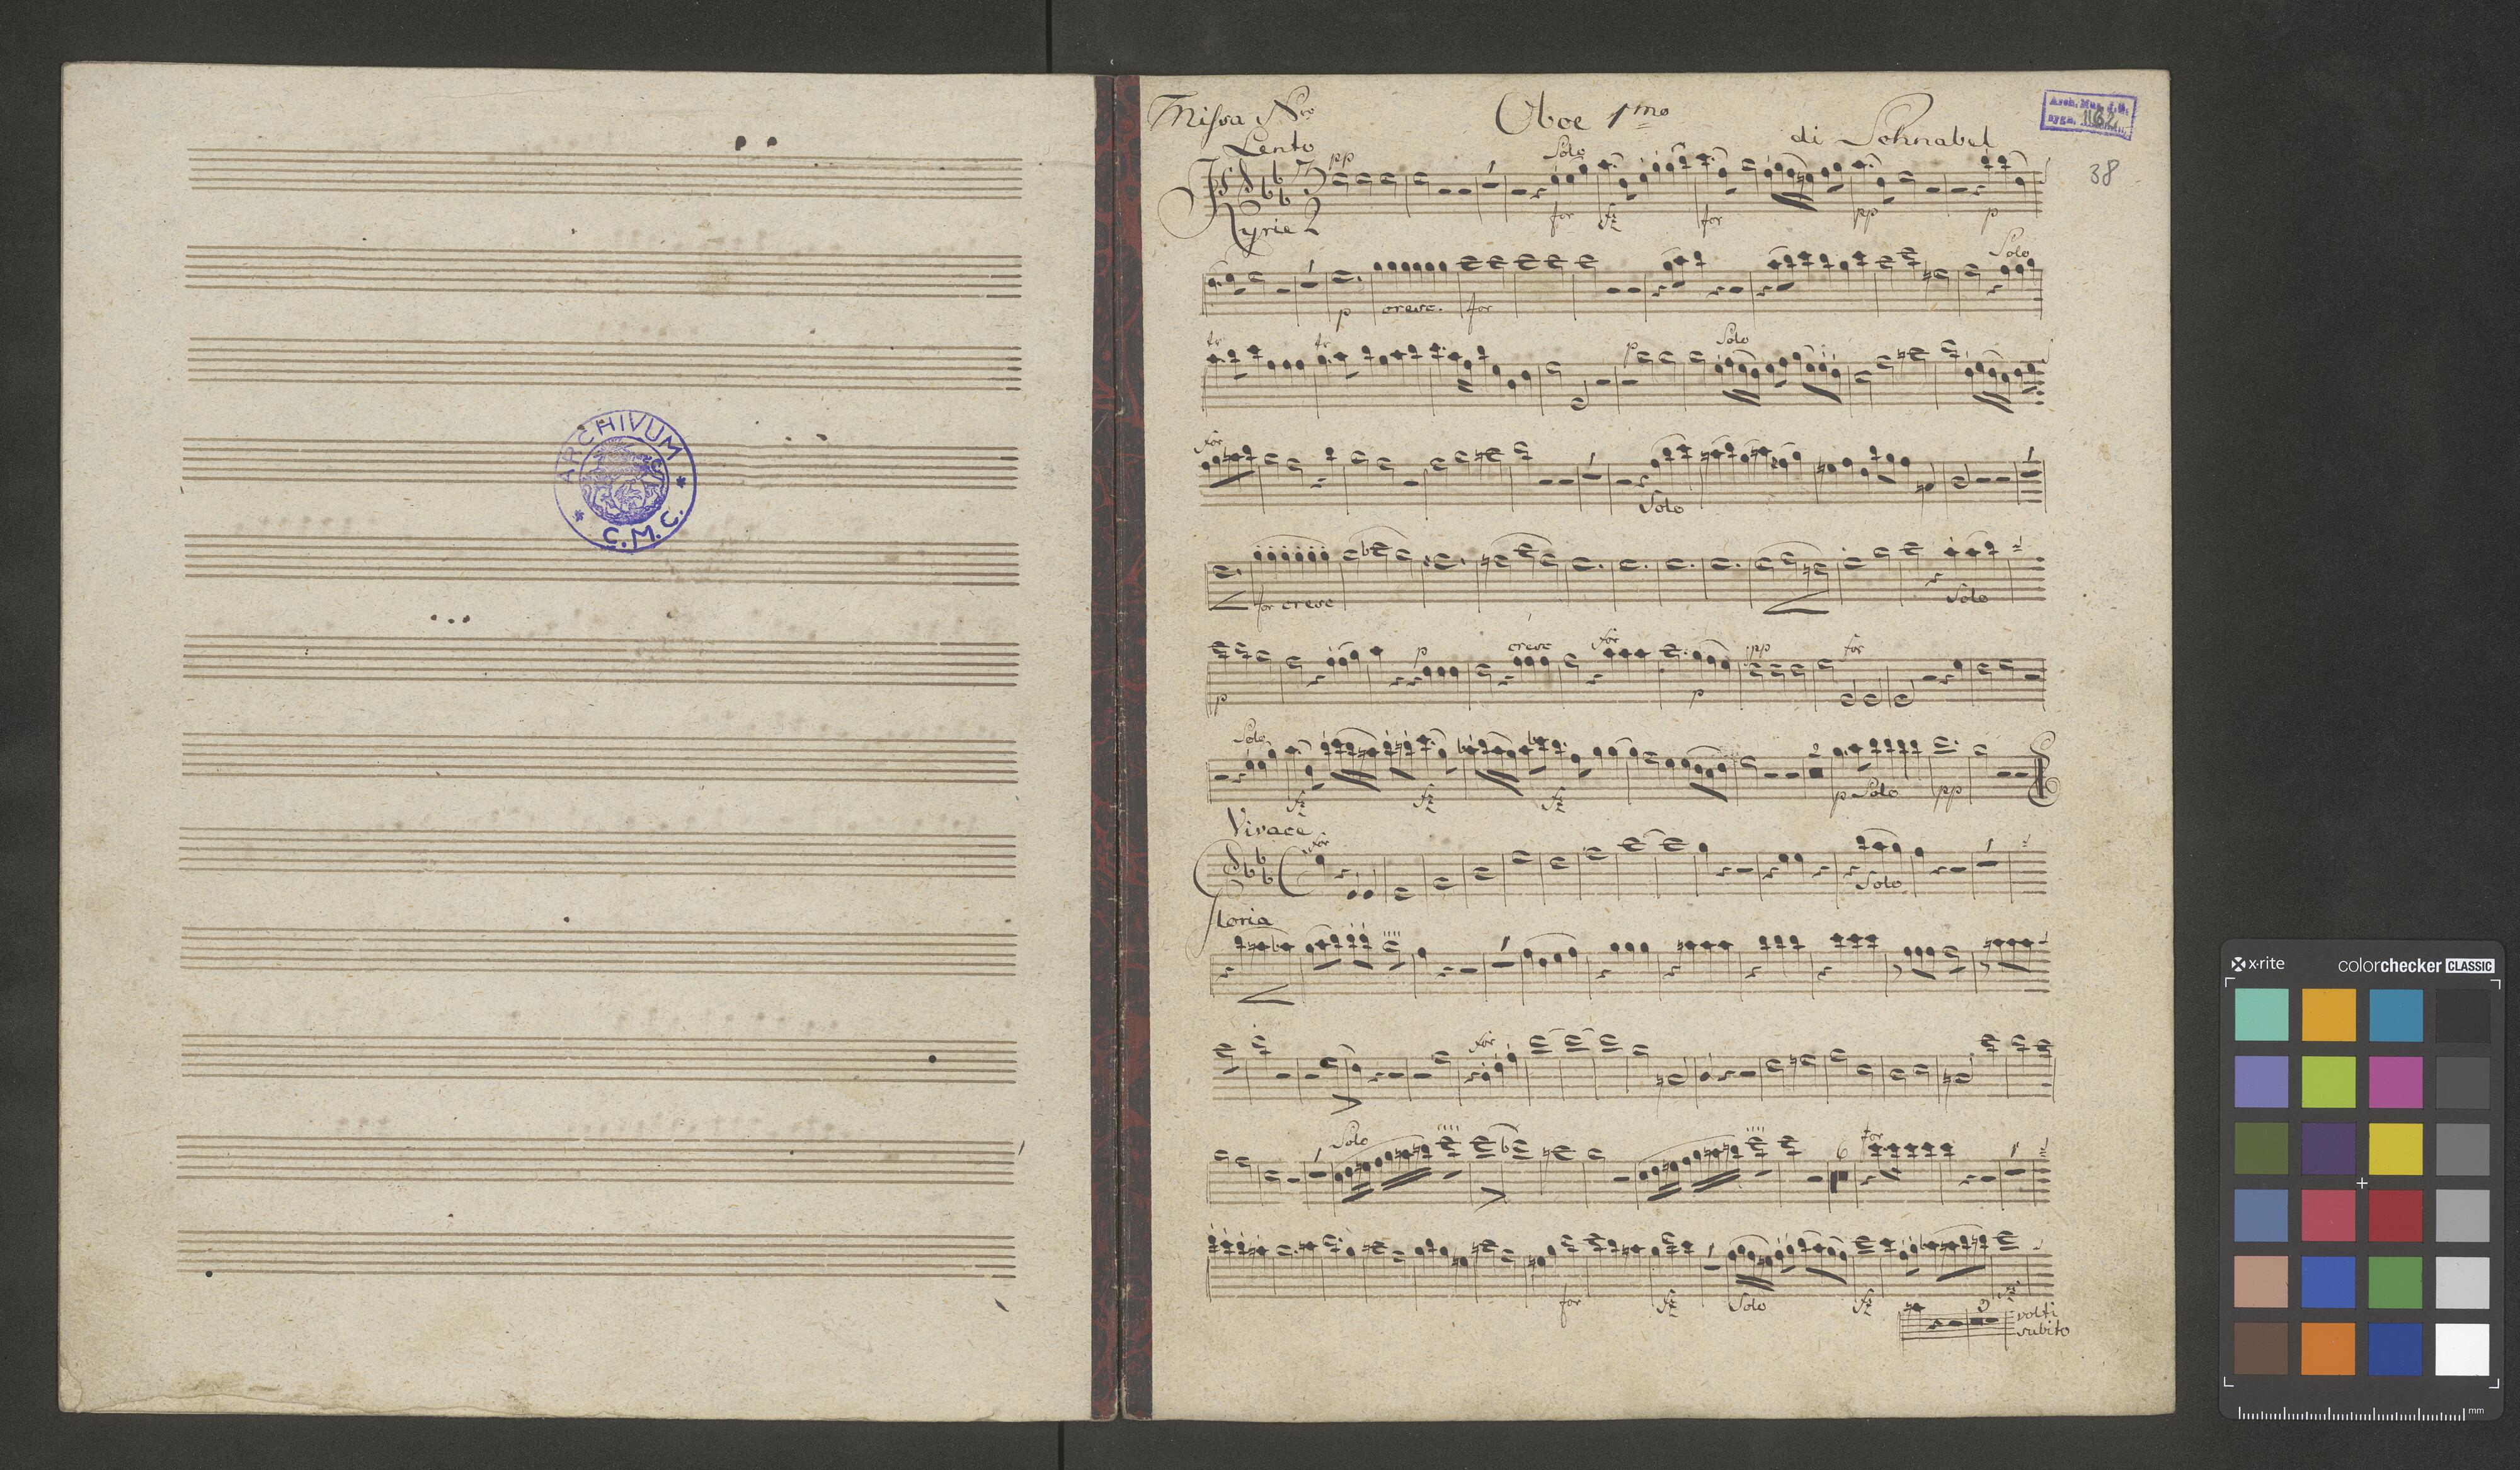 ARCHIVUM
C.M.C.
Missa Nro
Oboe 1mo
di Schnabel
38
Lento
pp
Solo
Kyrie
for
fz
for
pp
p
Solo
p
cresc.
for
tr
tr
p
Solo
for
Solo
for cresc
Solo
p
cresc
for
pp
for
p
p
Solo
2
fz
fz
fz
p Solo
pp
Vivace
for
Solo
Gloria
for
Solo
6
for
for
fz
Solo
fz
fz
volti
subito
x-rite
colorchecker CLASSIC
mm